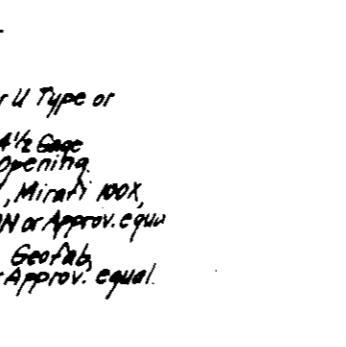 r U Type or
4½ Gage
Opening.
, Mirafi 100X,
N or Approv. equ
Geofab,
r Approv. equal.